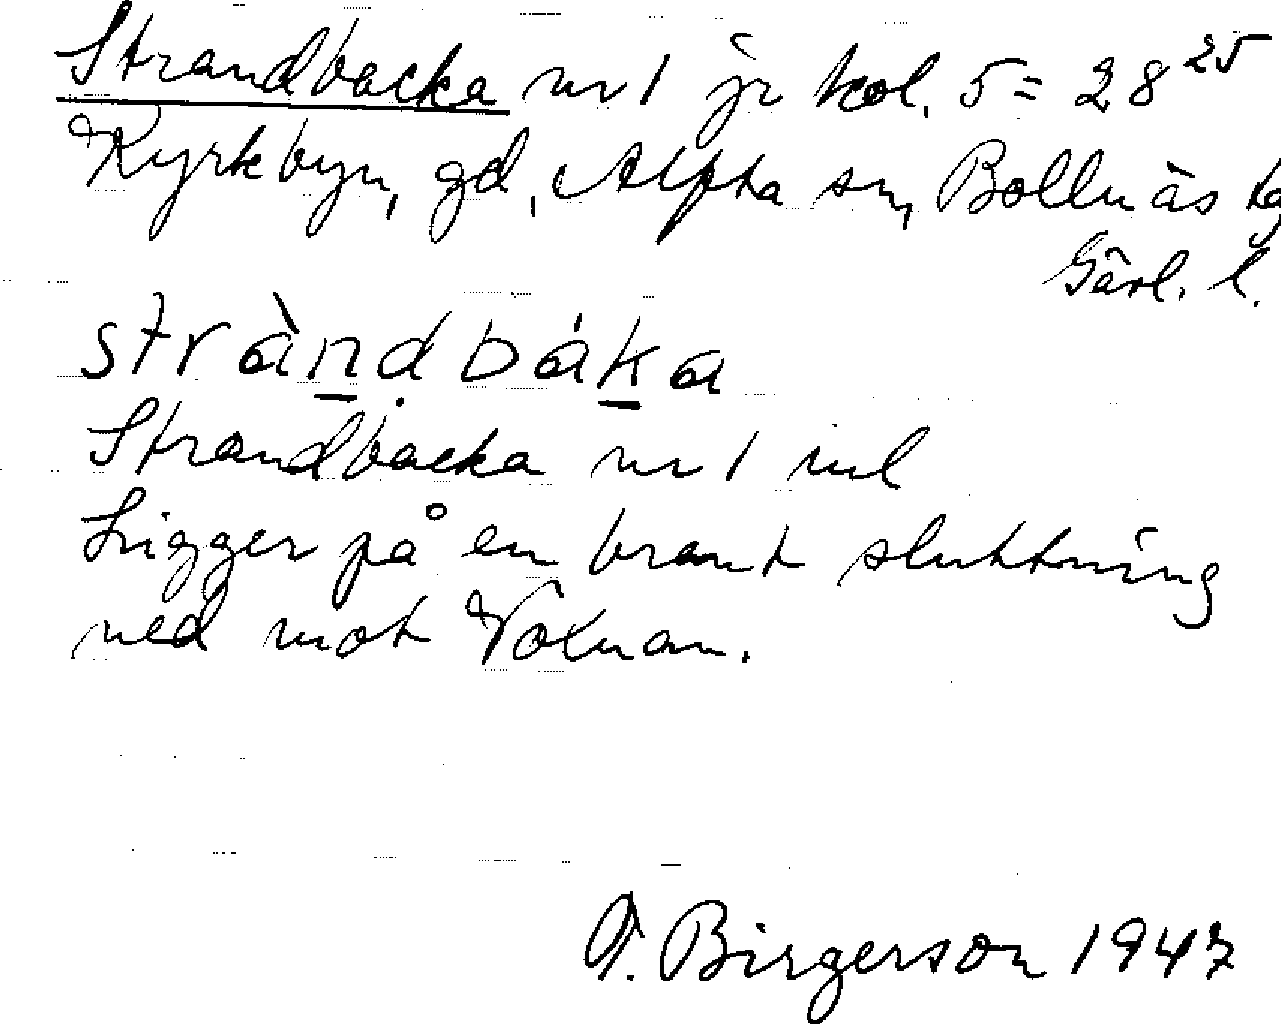 Strandbacka nr 1 jr kol. 5 = 28 25
Kyrkbyn, gd, Alfta sn, Bollnäs tg
Gävl. l.
stràndbáka
Strandbacka nr 1
Ligger på en brant sluttning
ned mot Voxnan.
Birgerson 1947